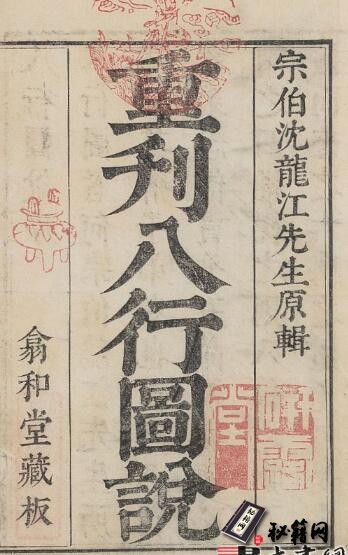 宗伯沈龍江先生原輯
重刊八行圖說
翕和堂藏板
秘籍网